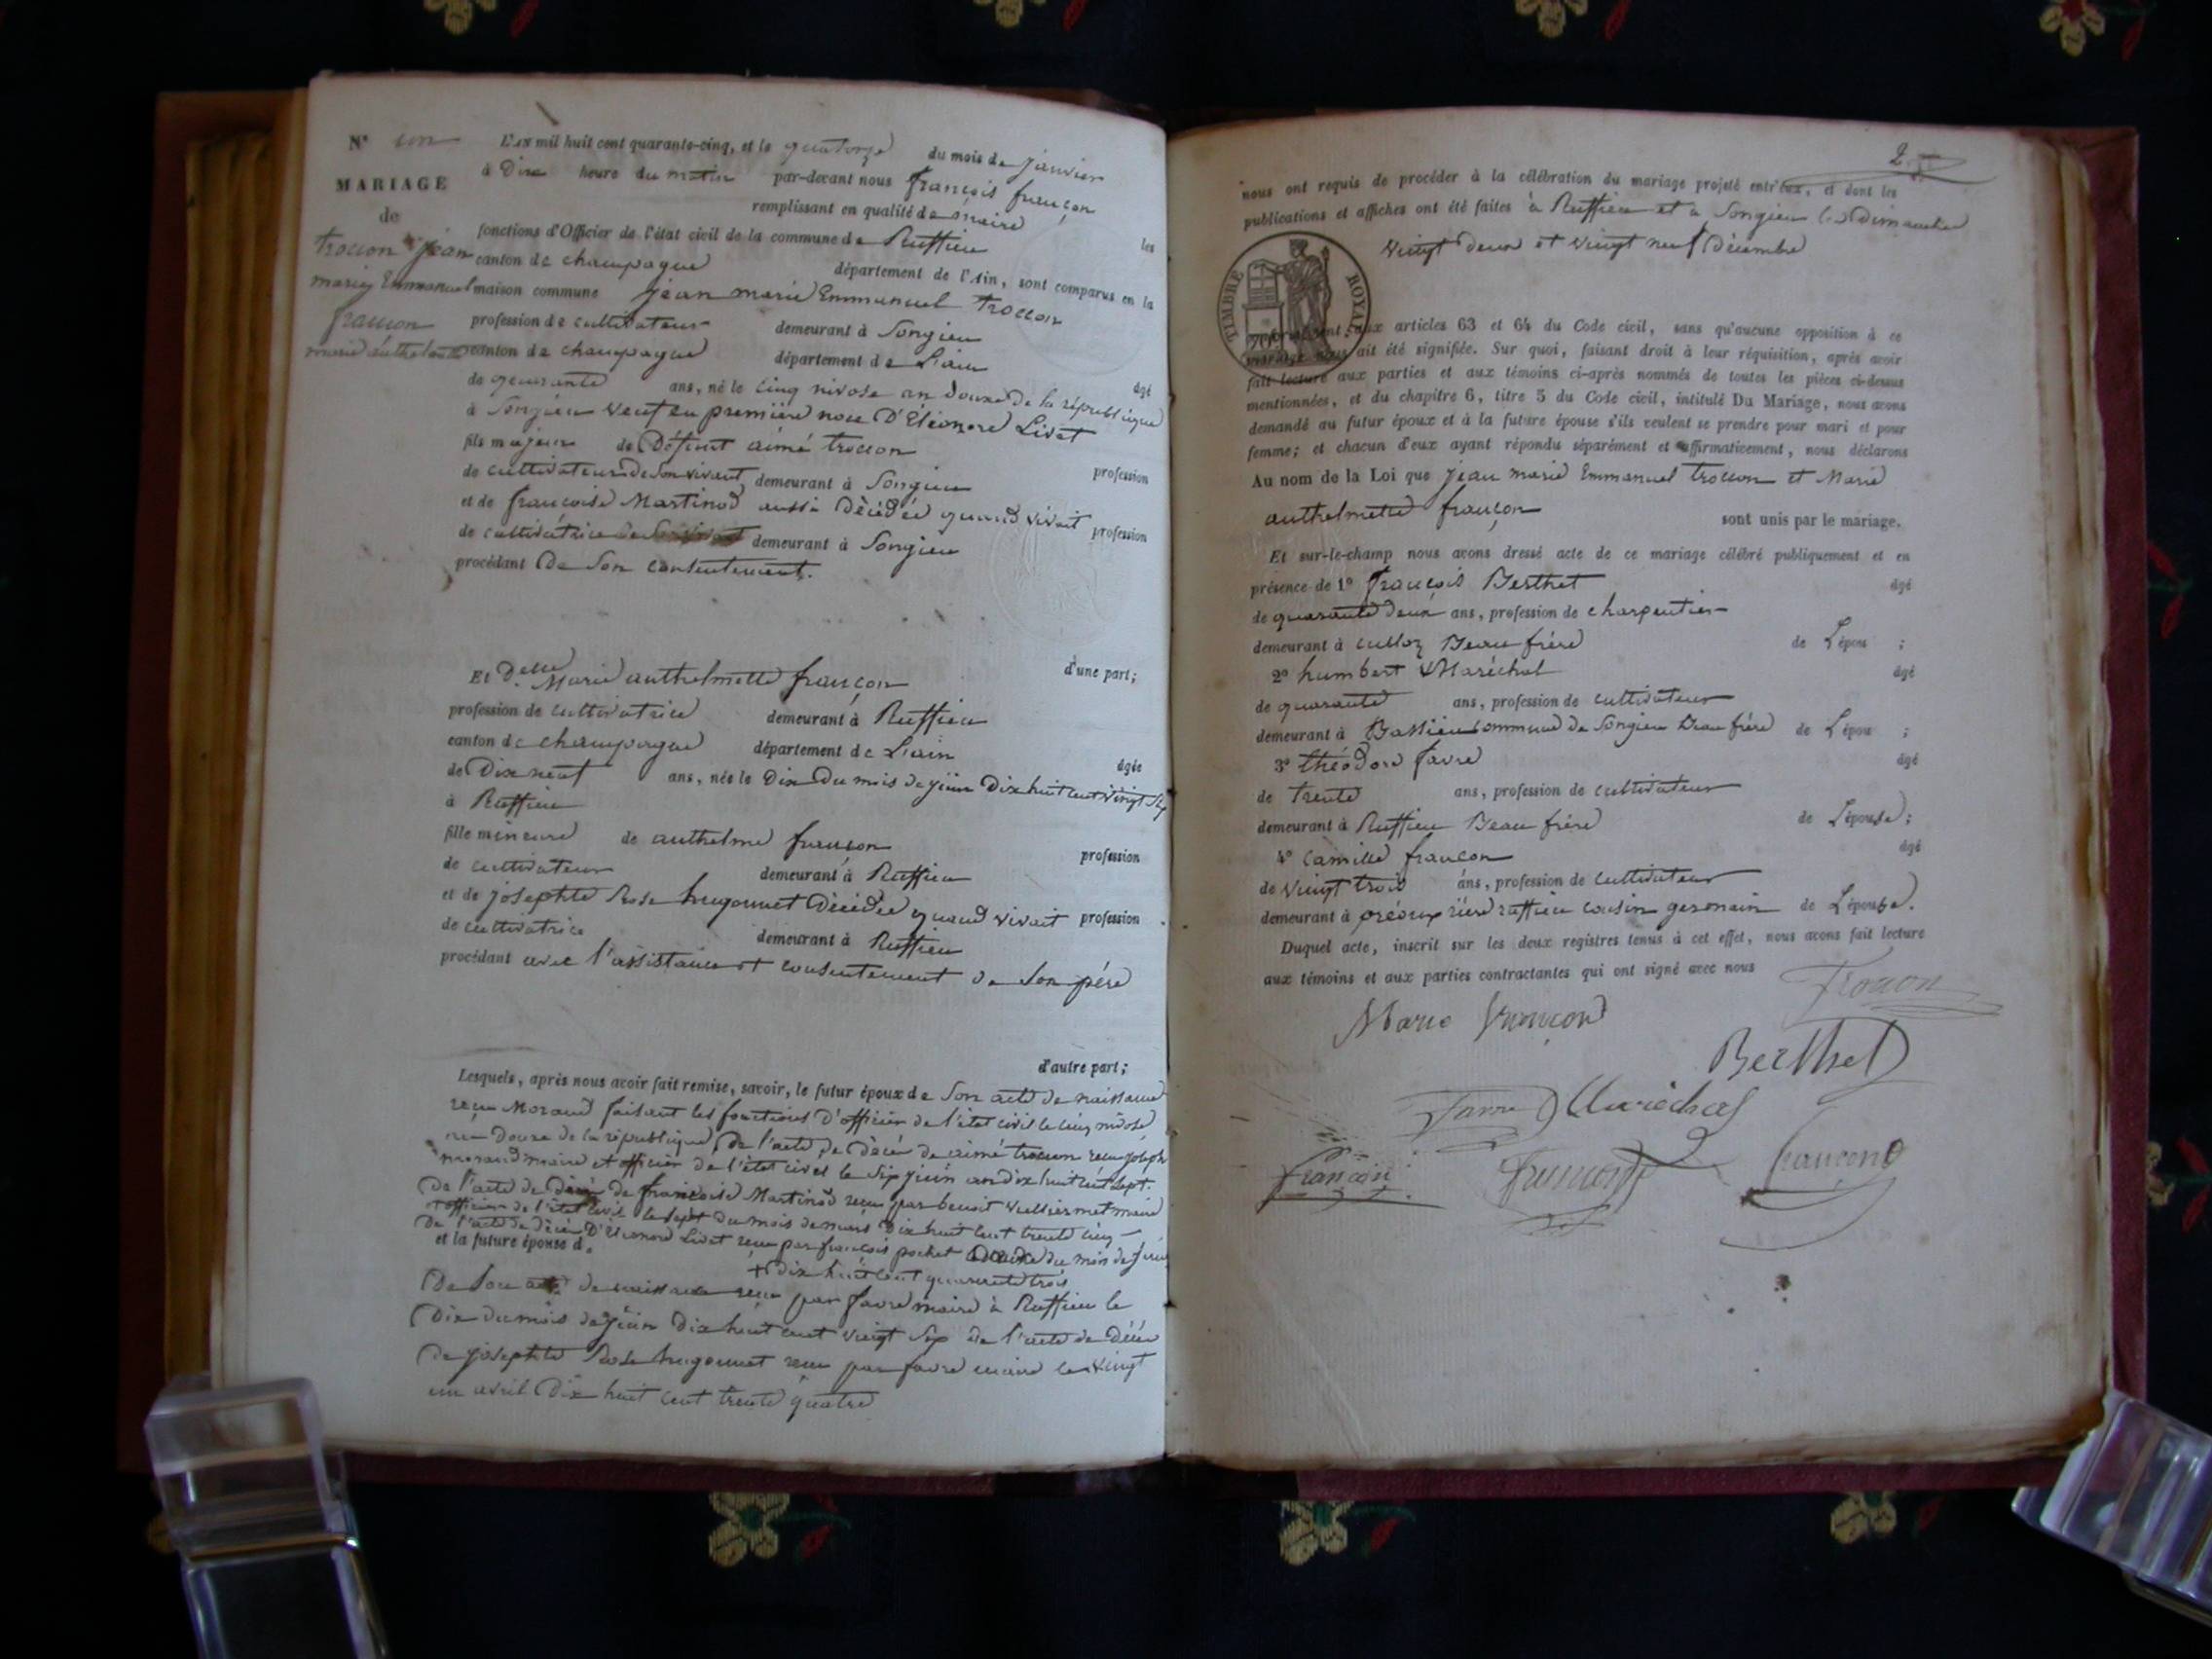 N° un
MARIAGE
de
trocon jean
marie Emmanuel
françon
marie anthelmette
L'an mil huit cent quarante-cinq, et le quatorze du mois de janvier
à Dix heure du matin par-devant nous françois françon
remplissant en qualité de maire les
fonctions d'Officier de l'état civil de la commune de Ruffieu
canton de champagne département de l'Ain, sont comparus en la
maison commune jean marie Emmanuel trocon
profession de cultivateur demeurant à Songieu
canton de champagne département de L'ain âgé
de quarante ans, né le cinq nivose an douze de la république
à Songieu veuf en première noce D'Éléonore Livet
fils majeur de Défunt aimé trocon profession
de cultivateur de son vivant demeurant à Songieu
et de francoise Martinod aussi Décédée quand vivait profession
de cultivatrice demeurant à Songieu
procédant De Son consentement.
d'une part;
Et Delle Marie anthelmette françon
profession de cultivatrice demeurant à Ruffieu
canton de champagne département de L'ain âgée
de Dix neuf ans, née le Dix Du mois de juin Dix huit cent vingt six
à Ruffieu
fille mineure de anthelme françon profession
de cultivateur demeurant à Ruffieu
et de josephte Rose hugonnet Décédée quand vivait profession
de cultivatrice demeurant à Ruffieu
procédant avec l'assistance et consentement de Son père
d'autre part;
Lesquels, après nous avoir fait remise, savoir, le futur époux de Son acte de naissance
reçu Morand faisant les fonctions D'officier de l'état civil le cinq nivose
an Douze de la république, De l'acte de Décès de aimé trocon reçu joseph
morand maire et officier de l'état civil le Six juin an dix huit cent sept.
De l'acte de Décès de francoise Martinod reçu par benoit vuilliermet maire
et officier de l'état civil le sept du mois de mars Dix huit cent trente cinq
De l'acte de décès D'Éléonore Livet reçu par françois pochet du mois de
et la future épouse d.
+ Dix huit cent quarante trois
De Son acte de naissance reçu par favre maire à Ruffieu le
Dix du mois de juin Dix huit cent vingt Six de l'acte de Décès
De josephte Rose hugonnet reçu par favre maire le vingt
un avril Dix huit cent trente quatre
2.
nous ont requis de procéder à la célébration du mariage projeté entr'eux, et dont les
publications et affiches ont été faites à Ruffieu et à Songieu les Dimanches
vingt Deux et vingt neuf Décembre
TIMBRE ROYAL
conformément aux articles 63 et 64 du Code civil, sans qu'aucune opposition à ce
mariage nous ait été signifiée. Sur quoi, faisant droit à leur réquisition, après avoir
fait lecture aux parties et aux témoins ci-après nommés de toutes les pièces ci-dessus
mentionnées, et du chapitre 6, titre 5 du Code civil, intitulé Du Mariage, nous avons
demandé au futur époux et à la future épouse s'ils veulent se prendre pour mari et pour
femme; et chacun d'eux ayant répondu séparément et affirmativement, nous déclarons
Au nom de la Loi que jean marie Emmanuel trocon et Marie
anthelmette françon sont unis par le mariage.
Et sur-le-champ nous avons dressé acte de ce mariage célébré publiquement et en
présence de 1° françois Berthet âgé
de quarante deux ans, profession de charpentier
demeurant à culloz Beau frère de L'épou ;
2° humbert Maréchal âgé
de quarante ans, profession de cultivateur
demeurant à Bassieu commune de Songieu Beau frère de L'épou ;
3° théodore favre âgé
de trente ans, profession de cultivateur
demeurant à Ruffieu Beau frère de L'épouse;
4° camille françon âgé
de vingt trois ans, profession de cultivateur
demeurant à ruffieu cousin germain de L'épouse.
Duquel acte, inscrit sur les deux registres tenus à cet effet, nous avons fait lecture
aux témoins et aux parties contractantes qui ont signé avec nous
Trocon
Marie françon
Berthet
Favre Maréchal
françon françon françon